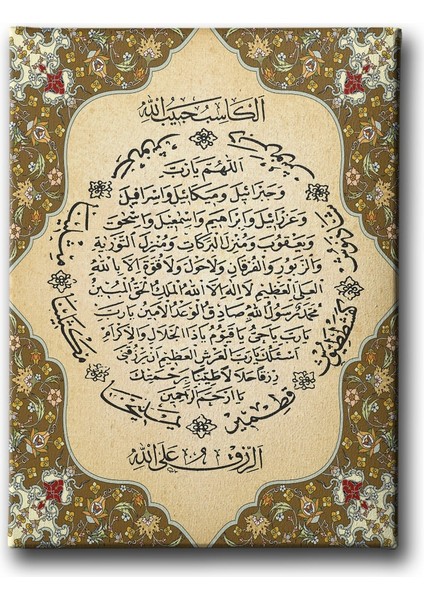 الكاسب حبيب الله
مرنوش
دبرنوش
اللهم يا رب
وجبرائيل وميكائيل واسرافيل
وعزرائيل وابراهيم واسمعيل واسحق
شاذنوش
مثلينا
ويعقوب ومنزل البركات ومنزل التورية
والزبور والفرقان ولا حول ولا قوة الا بالله
العلي العظيم لا اله الا الله الملك الحق المبين
محمد رسول الله صادق الوعد الامين يا رب
يا رب يا حي يا قيوم يا ذا الجلال والاكرام
مكسلينا
اسئلك يا رب العرش العظيم ان يرزقني
رزقا حلالا طيبا برحمتك
يا ارحم الراحمين
قطمير
يمليخا
الرزق على الله